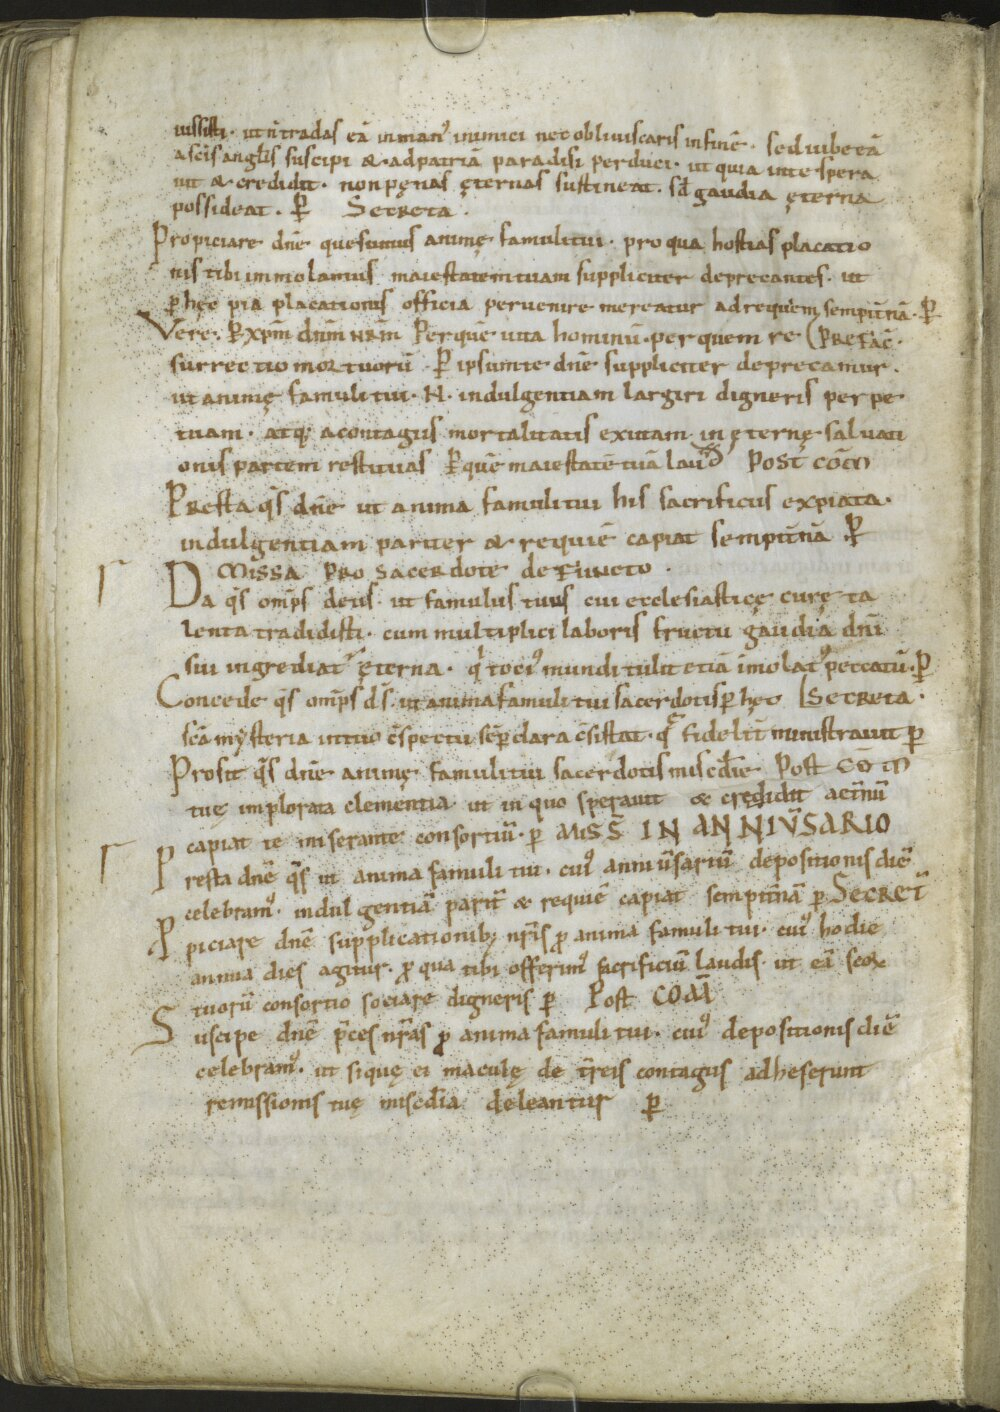 iussisti. ut n̄ tradas eā in man᾽ inimici nec obliuiscaris in finē. sed iube eā
a scīs angłis suscipi & ad patriā paradisi perduci. ut quia in te spera
uit & credidit. non pęnas ęternas sustineat. sꝫ gaudia ęterna
possideat. P̄ Secreta.
Propiciare dn̄e quesumus animę famuli tui. pro qua hostias placatio
nis tibi immolamus maiestatem tuam suppliciter deprecantes. ut
p̄ hęc pia placationis officia peruenire mereatur ad requiem sempit̄nā. P̄
Vere. P̄ xp̄m dn̄m nr̄m Per quē uita hominū. per quem re (Prefac̄.
surrectio mortuorū P̄ ipsum te dn̄e suppliciter deprecamur.
ut animę famuli tui. N. indulgentiam largiri digneris perpe
tuam. atq; a contagiis mortalitatis exutam in ęternę saluati
onis partem restituas P̄ quē maiestatē tuā laud̄ Post cōm̄
Presta q̄s dn̄e ut anima famuli tui his sacrificiis expiata.
indulgentiam pariter & requiē capiat sempit̄nā P̄
Missa pro sacerdote defuncto.
Da q̄s omp̄s deus. ut famulus tuus cui ecclesiasticę curę ta
lenta tradidisti. cum multiplici laboris fructu gaudia dn̄i
sui ingrediat᾽ ęterna. q̄ toci᾽ mundi tulit etiā īmolat᾽ peccatū. P̄
Concede q̄s omp̄s d̄s. ut anima famuli tui sacerdotis p̄ hęc (Secreta.
sc̄a mysteria in tuo c̄spectu sēp clara c̄sistat. q̄ fidelit̄ ministrauit P̄
Prosit q̄s dn̄e animę famuli tui sacerdotis misc̄die Post cōm̄
tuę implorata clementia ut in quo sperauit & credidit aet̄nū
capiat te miserante consortiū. p̄ Miss̄ IN ANNIV̄SARIO
Presta dn̄e q̄s ut anima famuli tui. cui᾽ anniūsariū depositionis diē
celebram᾽. indulgentiā parit̄ & requiē capiat sempit̄nā p̄ Secret̄
Ppiciare dn̄e supplicationib; nr̄is p̄ anima famuli tui. cui᾽ hodie
annua dies agitur. p̄ qua tibi offerim᾽ sacrificiū laudis. ut eā scoꝝ
tuorū consortio sociare digneris p̄ Post cōm̄
Suscipe dn̄e p̄ces nr̄as p̄ anima famuli tui. cui᾽ depositionis diē
celebram᾽. ut siquę ei maculę de t̄reis contagiis adheserunt
remissionis tuę misc̄dia deleantur p̄